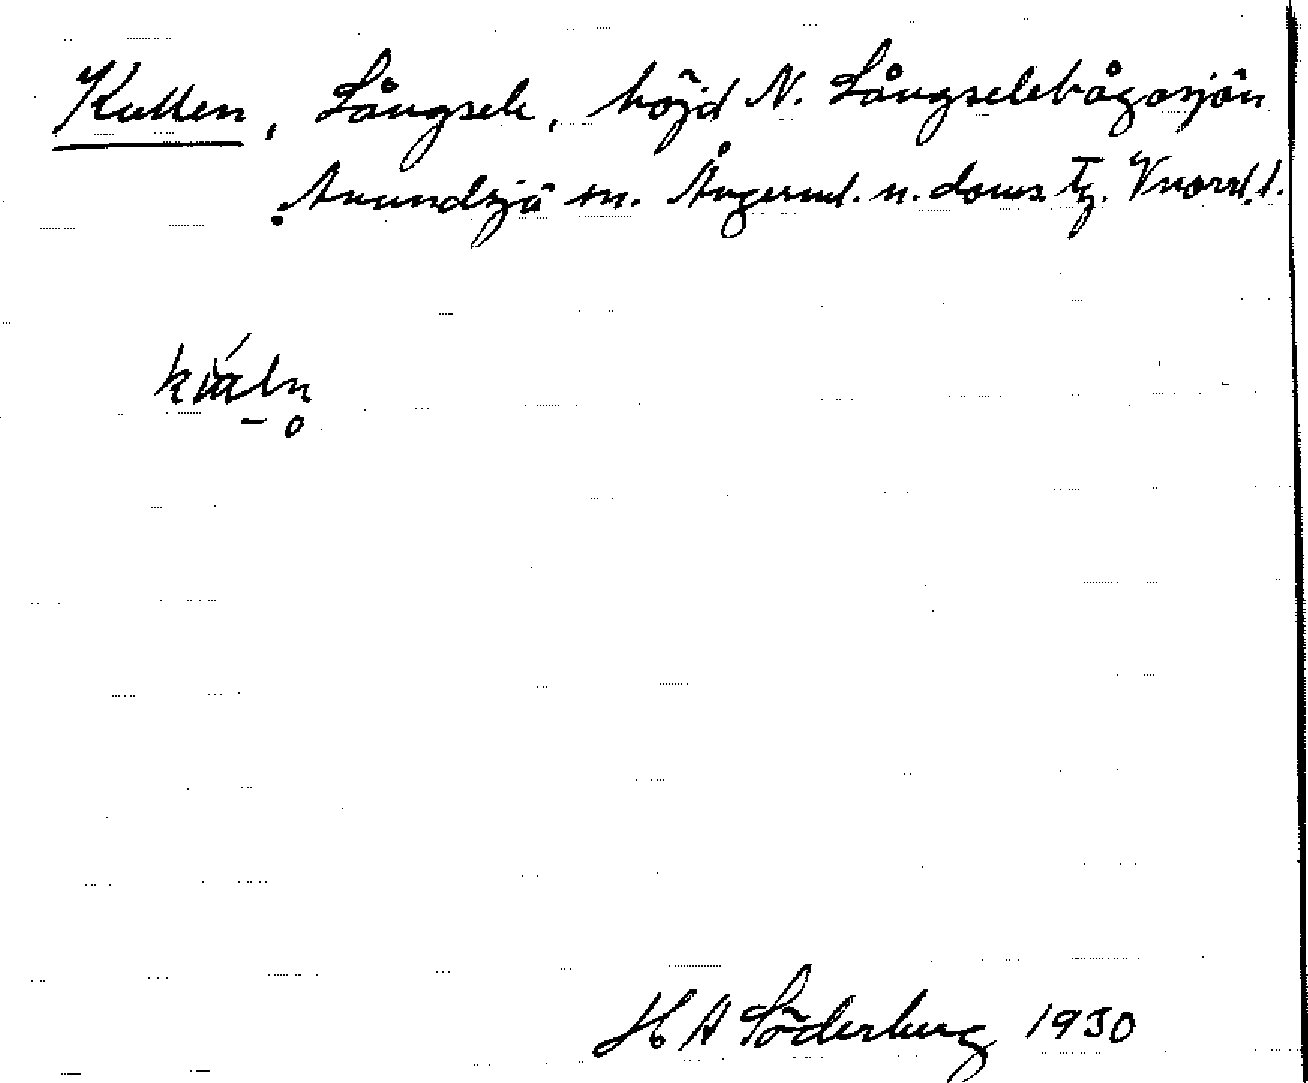 Kullen, Långsele, höjd N. Långselebågasjön
Anundsjö sn. Ångerml. n. doms. Tg. V.norrl. l.
H A Söderberg 1930